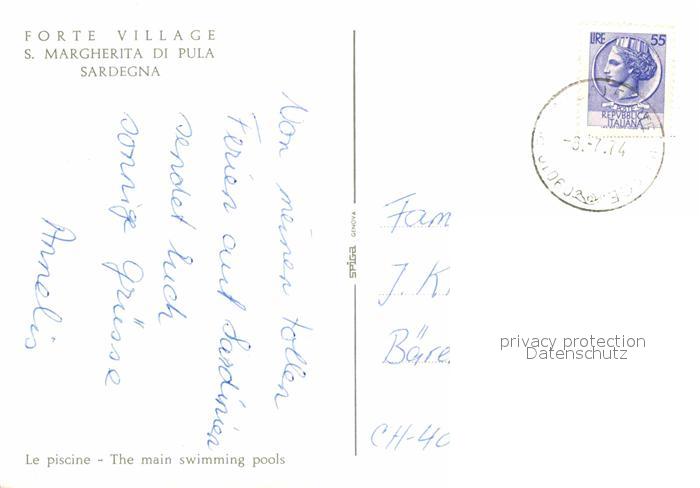 FORTE VILLAGE
S. MARGHERITA DI PULA
SARDEGNA
Von meinen tollen
Ferien auf Sardinien
sendet Euch
sonnige Grüsse
Annelis
Le piscine - The main swimming pools
SPIGA GENOVA
LIRE 55
POSTE
REPVBBLICA
ITALIANA
-8.-7.74
Fam
J. K.
Bäre
CH-40
privacy protection
Datenschutz